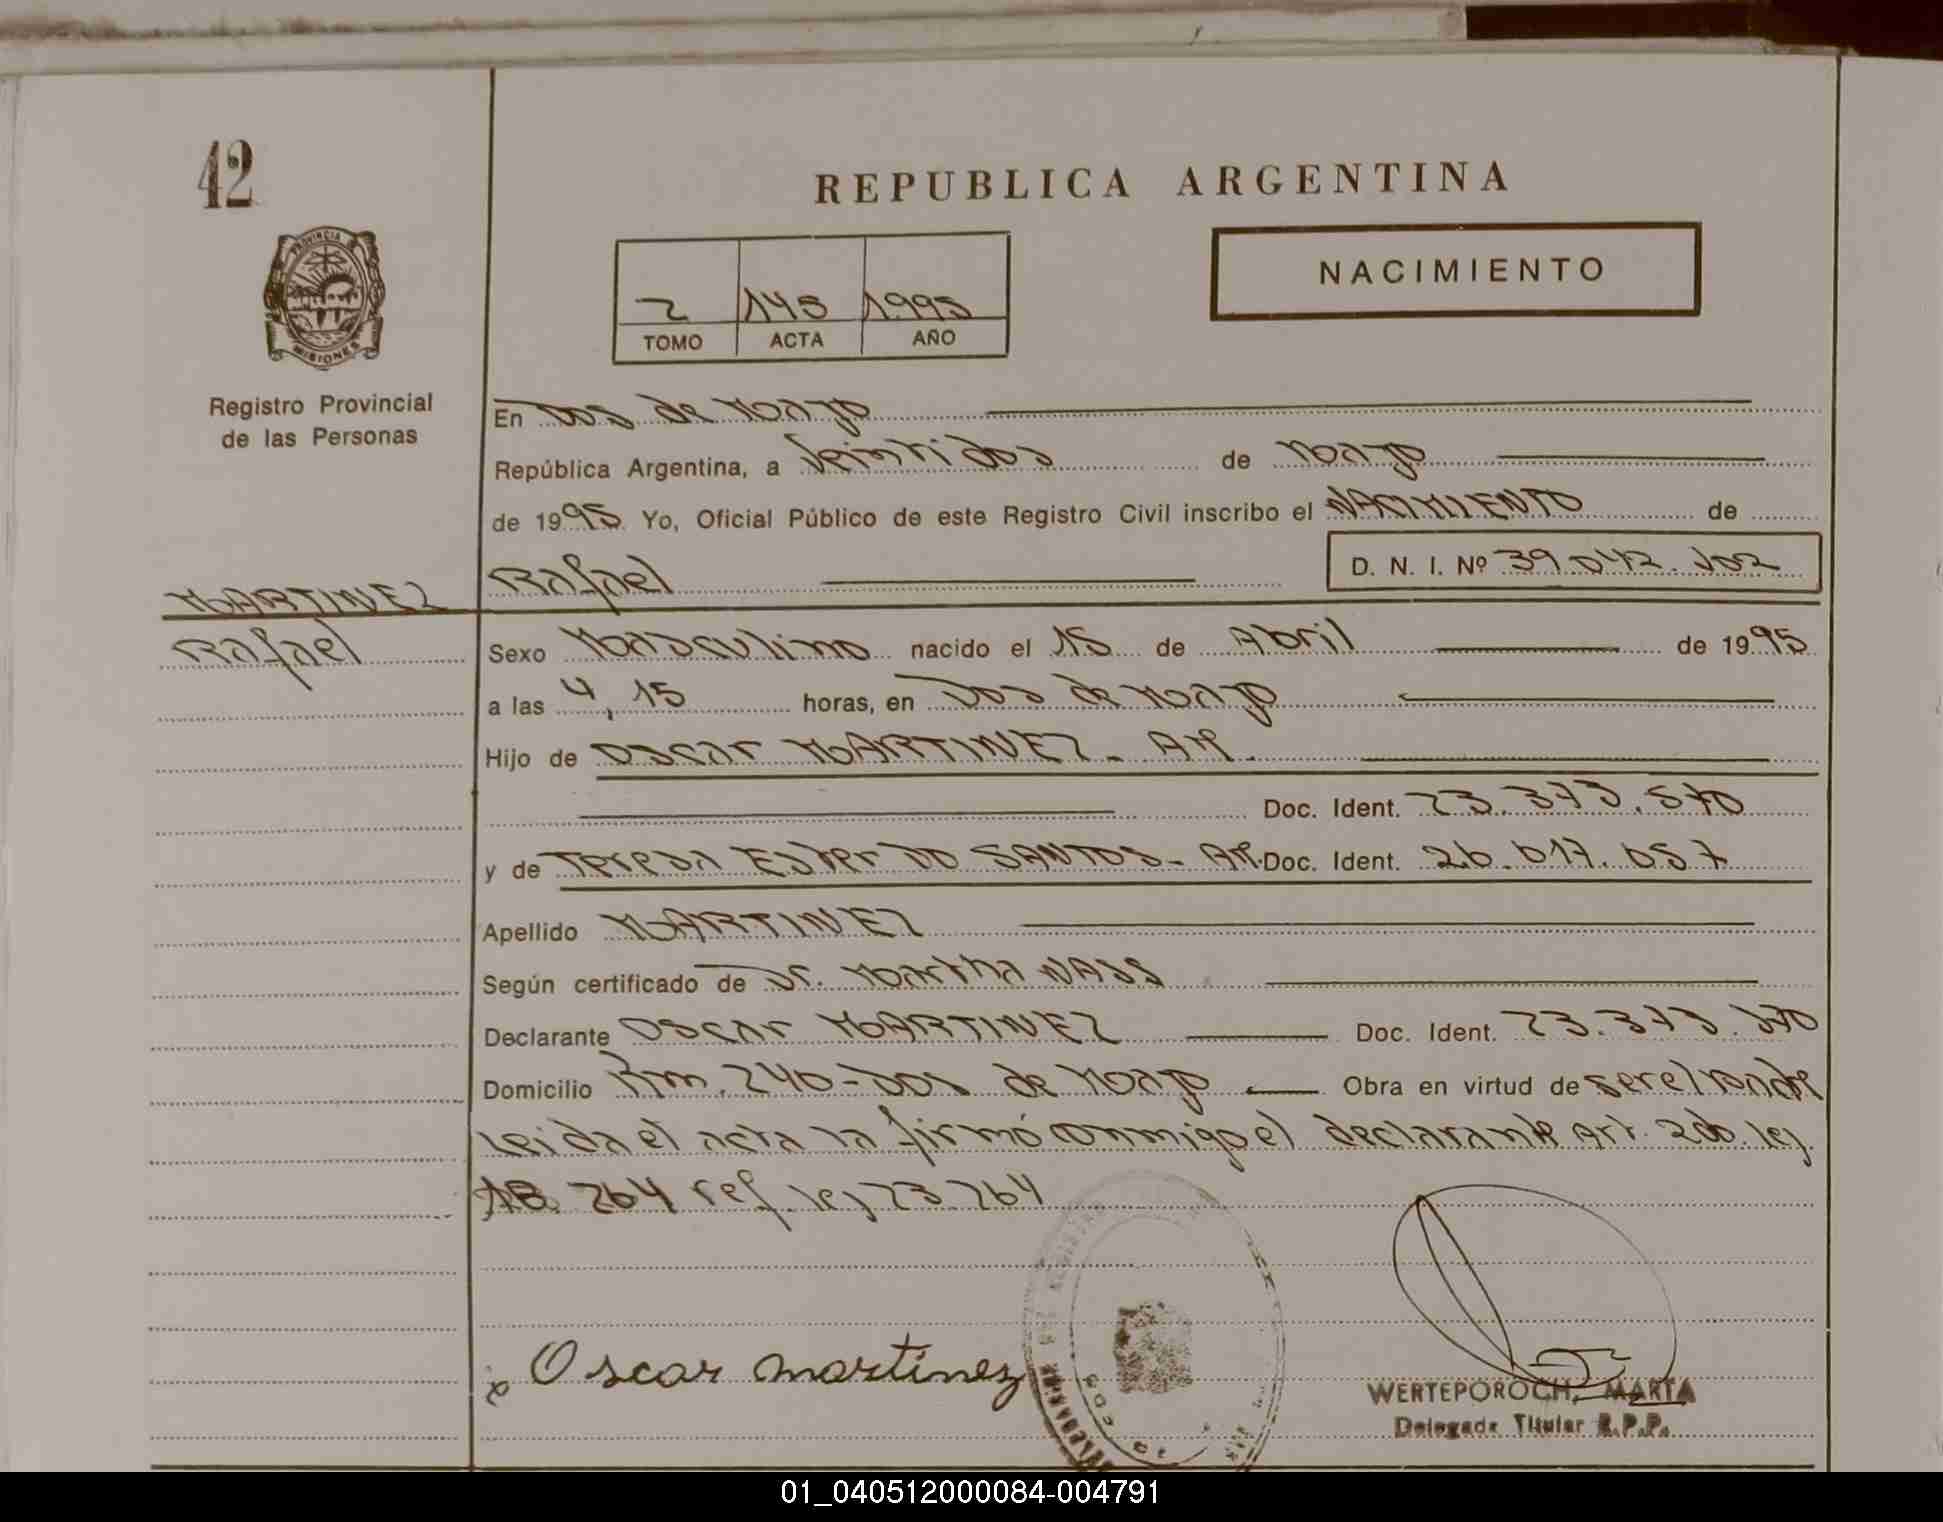 42
REPUBLICA ARGENTINA
PROVINCIA
MISIONES
Registro Provincial
de las Personas
2 145 1995
TOMO ACTA AÑO
NACIMIENTO
En Dos de Mayo
República Argentina, a Veintidos de Mayo
de 1995 Yo, Oficial Público de este Registro Civil inscribo el NACIMIENTO de
MARTINEZ Rafael D. N. I. Nº 39.042.502
Rafael
Sexo Masculino nacido el 15 de Abril de 1995
a las 4,15 horas, en Dos de Mayo
Hijo de Oscar MARTINEZ - AR.
Doc. Ident. 23.373.570
y de Teresa Ester DO SANTOS - AR. Doc. Ident. 26.017.057
Apellido MARTINEZ
Según certificado de Dr. Martha NASS
Declarante Oscar MARTINEZ Doc. Ident. 23.373.570
Domicilio Km. 240 - Dos de Mayo Obra en virtud de ser el padre
Leida el acta la firmó conmigo el declarante Art. 2do. ley
18.264 ref. ley 23.264
Oscar martinez
WERTEPOROCH, MARTA
Delegada Titular R.P.P.
01_040512000084-004791